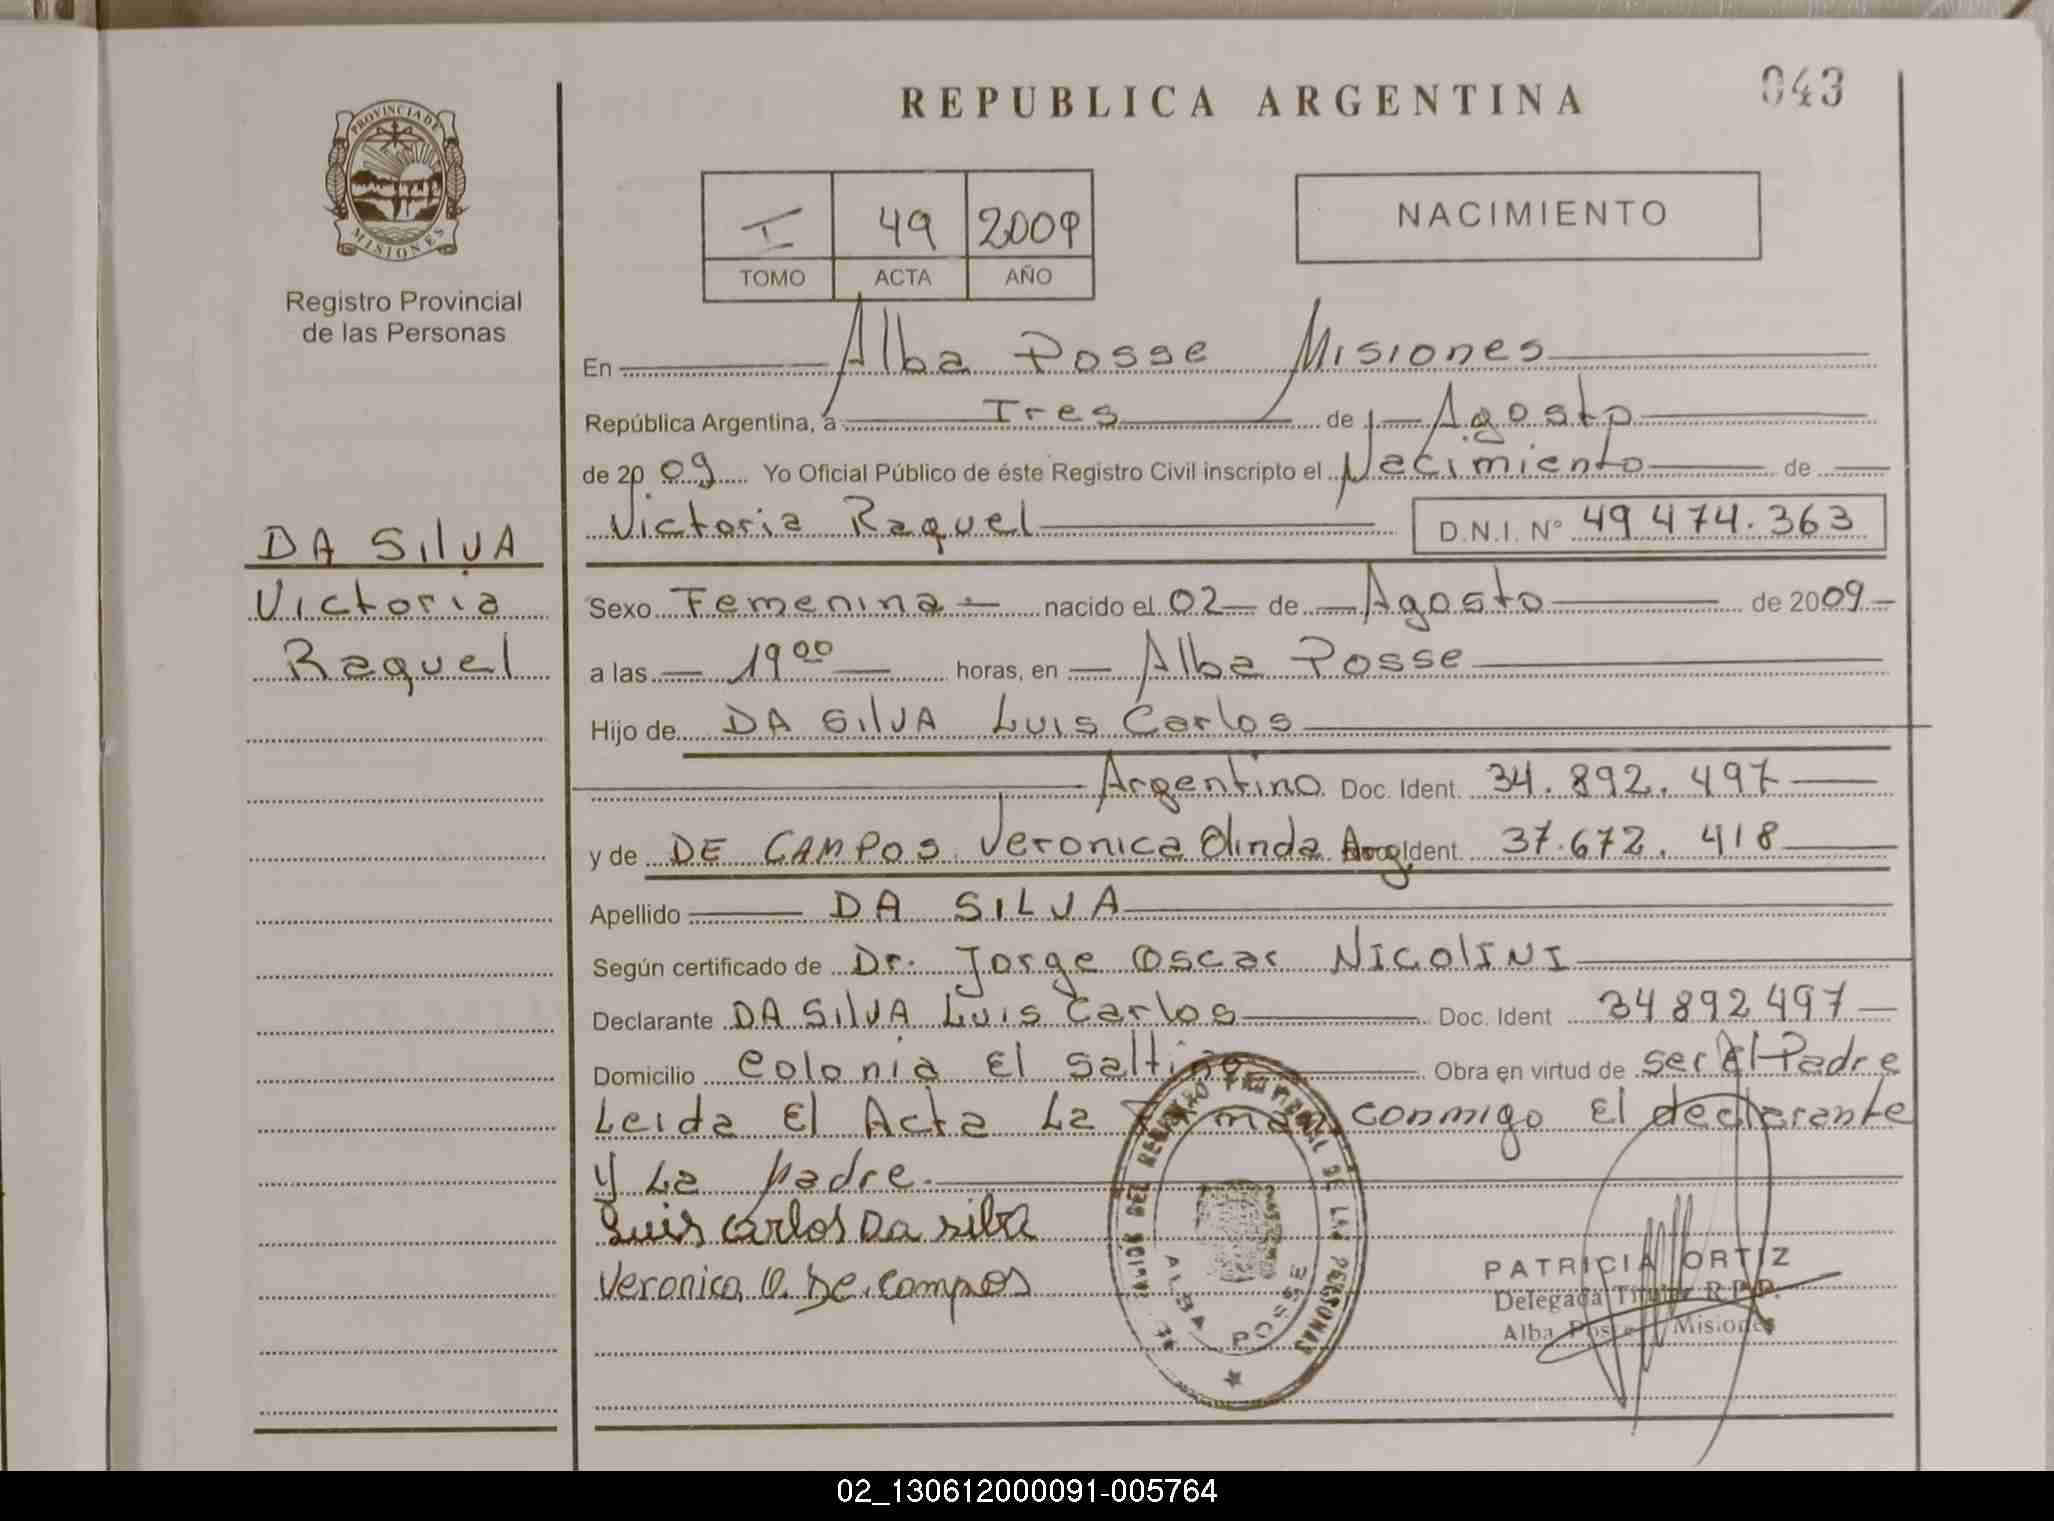 043
REPUBLICA ARGENTINA
PROVINCIA DE
MISIONES
Registro Provincial
de las Personas
I 49 2009
TOMO ACTA AÑO
NACIMIENTO
En Alba Posse Misiones
República Argentina, a Tres de Agosto
de 2009 Yo Oficial Público de éste Registro Civil inscripto el Nacimiento de
Victoria Raquel D.N.I. N° 49 474.363
DA SilVA
Victoria
Raquel
Sexo Femenina nacido el 02 de Agosto de 2009
a las 19 00 horas, en Alba Posse
Hijo de DA SilVA Luis Carlos
Argentino Doc. Ident. 34.892.497
y de DE CAMPOS Veronica Olinda Arg. Ident. 37.672.418
Apellido DA SILVA
Según certificado de Dr. Jorge Oscar NICOLINI
Declarante DA SilVA Luis Carlos Doc. Ident 34892497
Domicilio Colonia El Saltino Obra en virtud de ser El Padre
Leida El Acta La Firman conmigo El declarante
y La Madre.
Luis Carlos Da silva
Veronica O. De campos
DEL REGISTRO PROVINCIAL DE LAS PERSONAS
ALBA POSSE
PATRICIA ORTIZ
Delegada Titular R.P.P.
Alba Posse Misiones
02_130612000091-005764